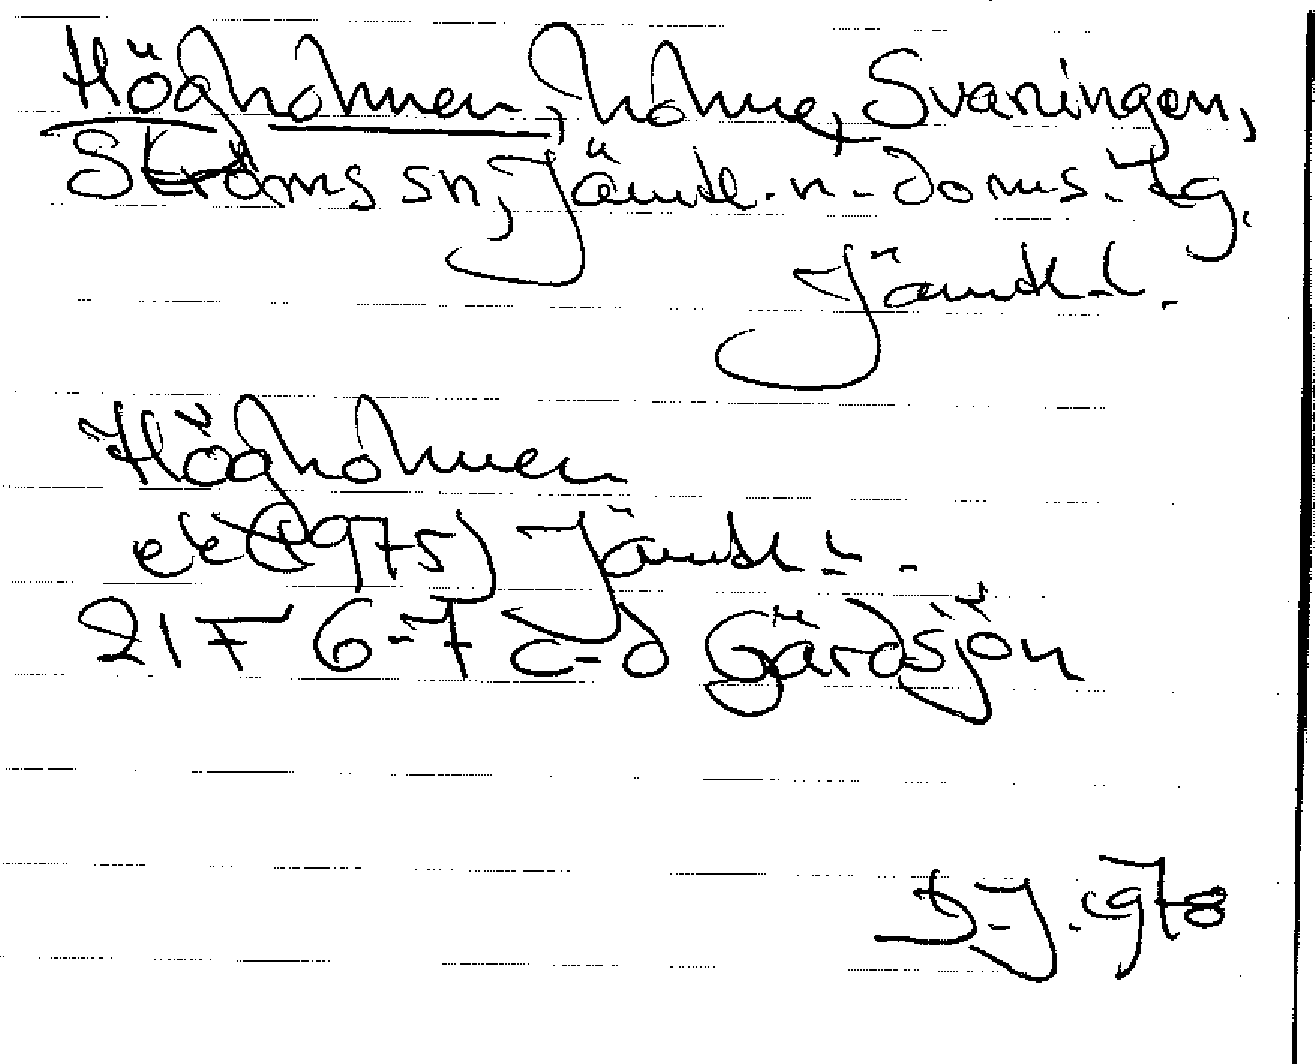 Högholmen, holme, Svaningen,
Ströms sn, Jämtl. n. doms. tg.
Jämtl. l.
Högholmen
ek (1975) Jämtl. l.
21 F 6-7 c-d Gärdsjön
D.J. 978